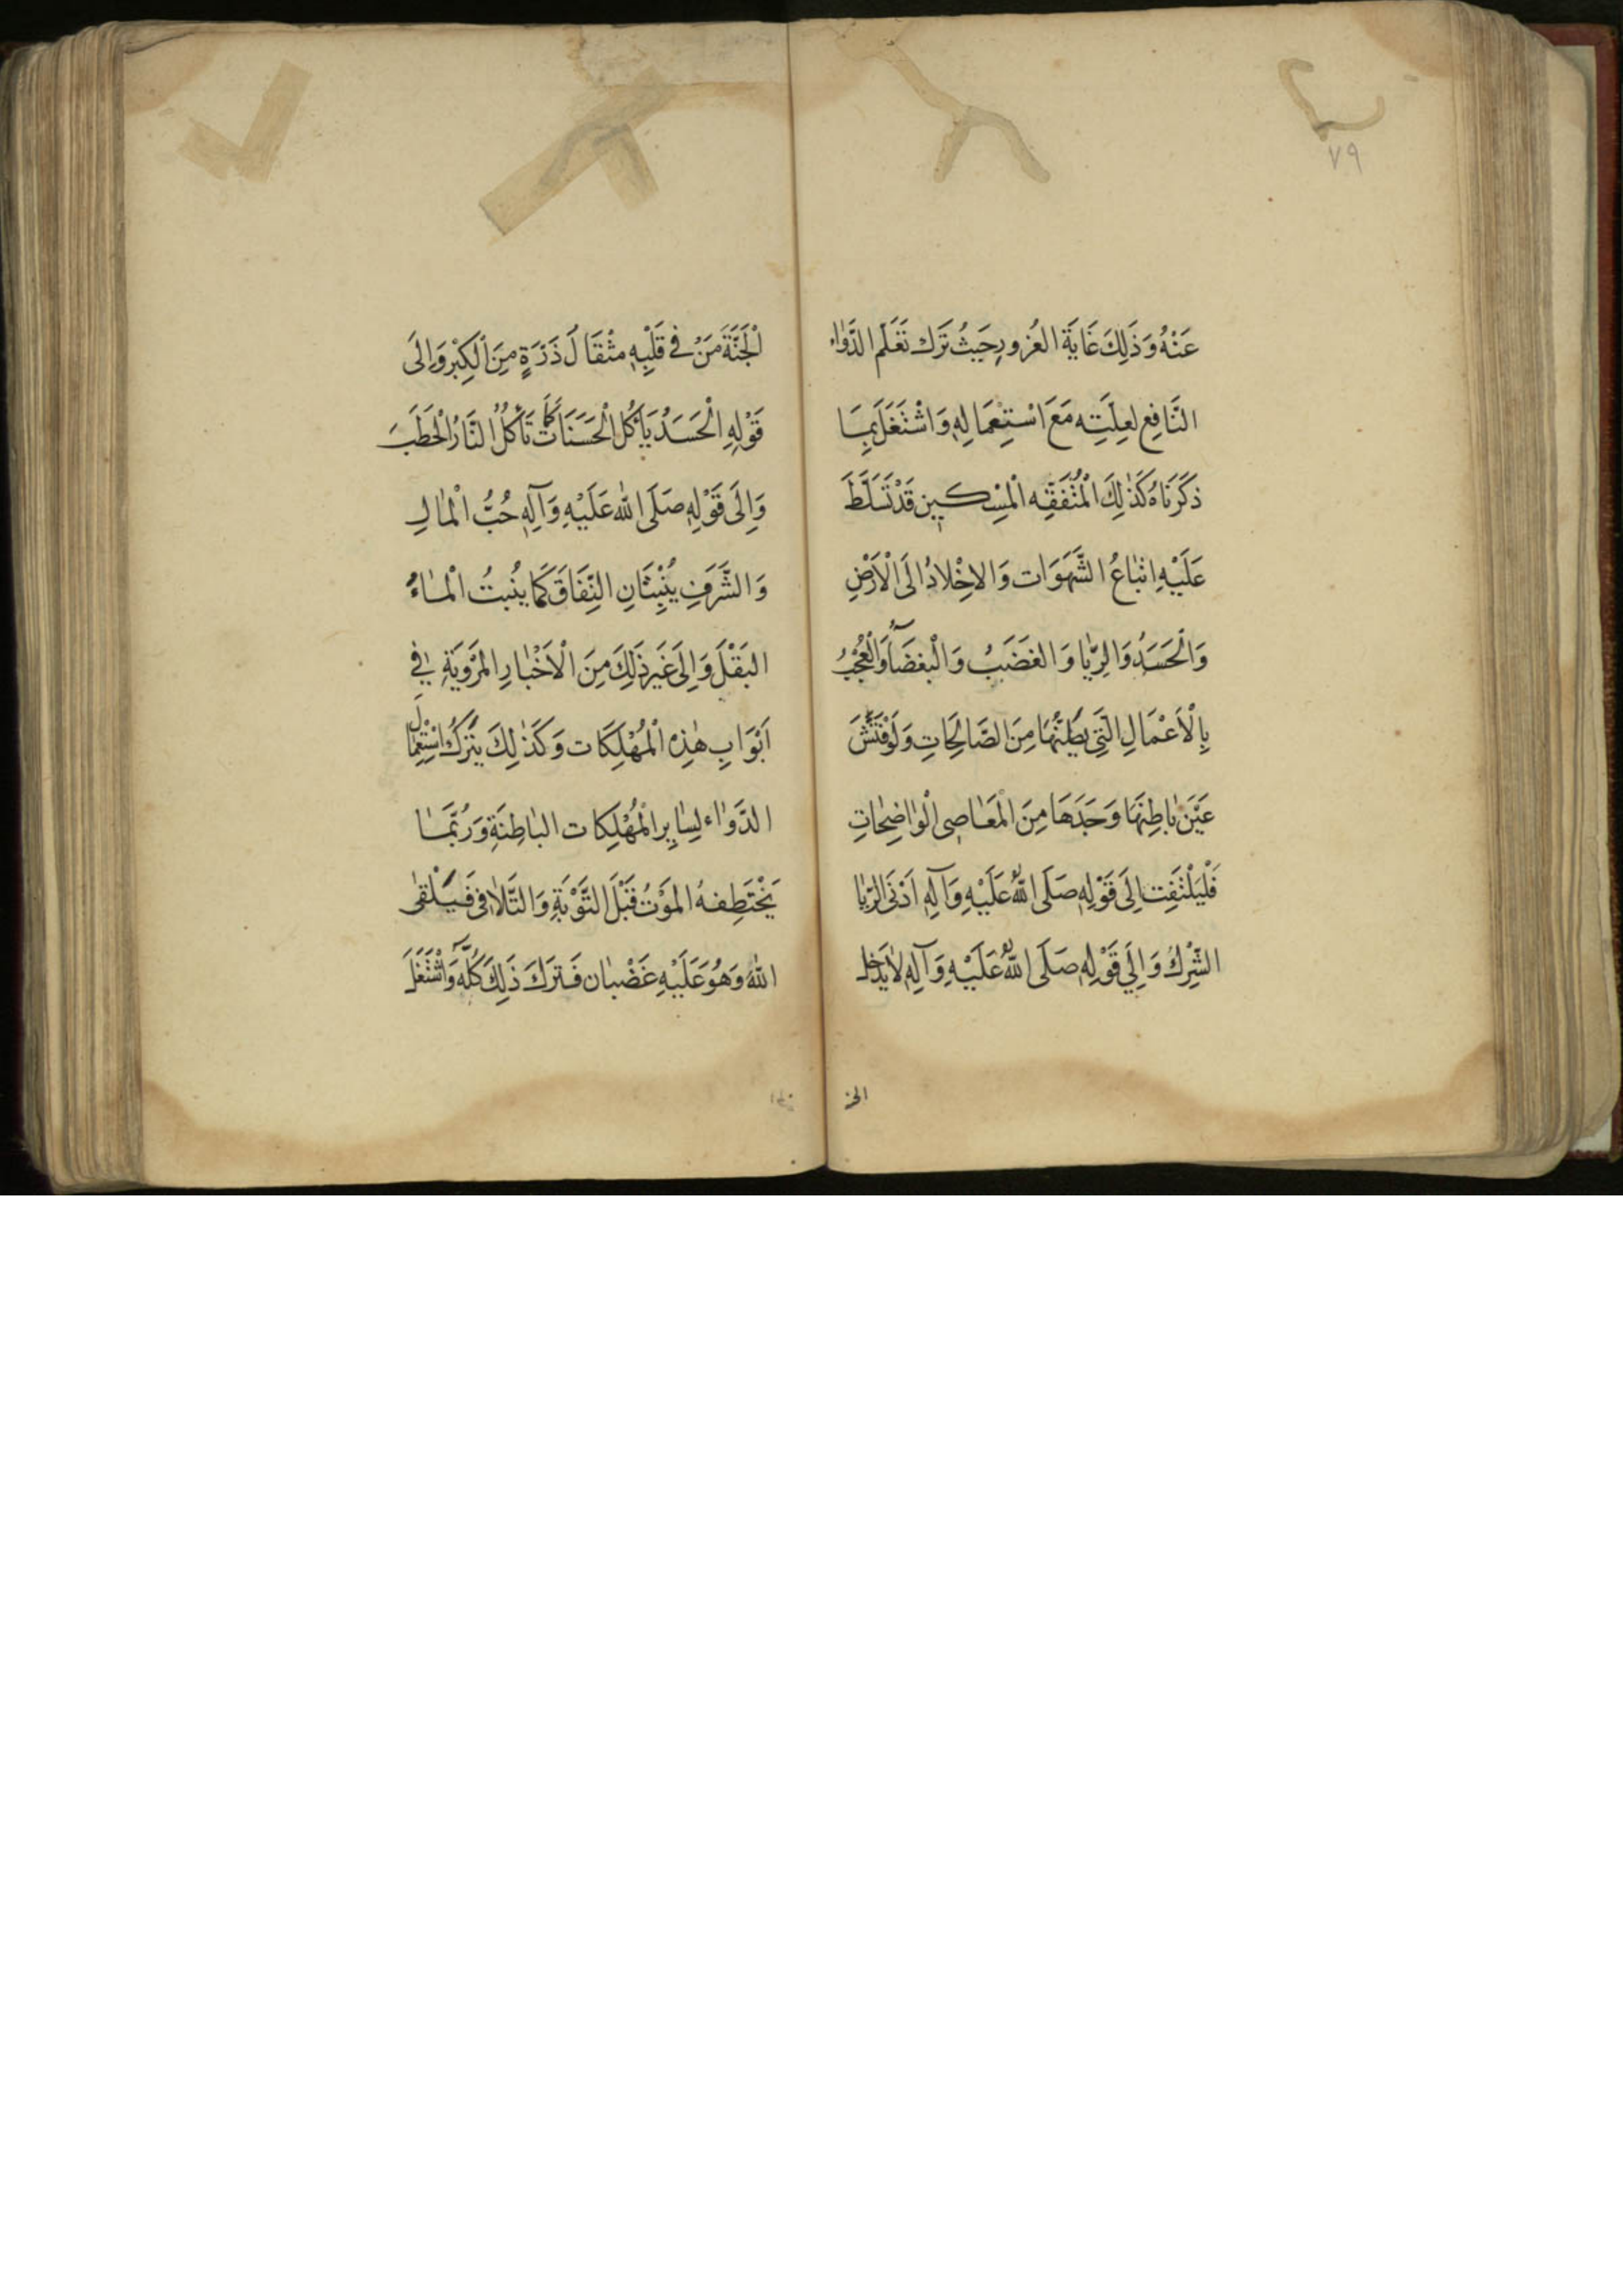 ٧٩
عَنْهُ وَذَلِكَ غَايَةُ الغُرُورِ حَيثُ تَرَكَ تَعَلُّمَ الدَّوَاء
النَّافِعِ لِعِلَّتِهِ مَعَ اسْتِعْمَالِهِ وَاشْتَغَلَ بِمَا
ذَكَرنَاهُ كَذَلِكَ الْمُتَفَقِّه الْمِسْكِين قَدْ تَسَلَّطَ
عَلَيْهِ اتْبَاعُ الشَّهَوَات وَالاِخْلَادُ اِلَى الْاَرْضِ
وَالْحَسَدُ وَالرِّيَا وَالغَضَبُ وَالْبغضَآءُ وَالْعُجْبُ
بِالْاَعْمَالِ الَّتِي يَظُنُّهَا مِنَ الصَّالِحَاتِ وَلَوْ فَتَّشَ
عَنْ بَاطِنِهَا وَجَدَهَا مِنَ الْمَعَاصِي الْوَاضِحَاتِ
فَلْيَلْتَفِت اِلَى قَوْلِهِ صَلَى اللّٰهُ عَلَيْهِ وَآلِهِ اَدْنَى الرِّيَا
الشِّرْكُ وَاِلَى قَوْلِهِ صَلَى اللّٰهُ عَلَيْهِ وَآلِهِ لَا يَدْخل
الجن
الْجَنَّةَ مَنْ فِي قَلْبِهِ مثْقَالُ ذَرَّةٍ مِنَ الْكِبْرِ وَاِلَى
قَوْلِهِ الْحَسَدُ يَأْكُلُ الْحَسَنَاتِ كَمَا تَأْكُلُ النَّارُ الْحَطَبَ
وَاِلَى قَوْلِهِ صَلَى اللّٰه عَلَيْهِ وَآلِهِ حُبُّ الْمَالِ
وَالشَّرَفِ يُنْبِتَانِ النِّفَاقَ كَمَا يُنْبِتُ الْمَاءُ
البَقْلَ وَاِلَى غَيرِ ذَلِكَ مِنَ الْاَخْبَارِ المَرْوِيَةِ فِي
اَبْوَابِ هٰذِهِ الْمُهْلِكَات وَكَذَلِكَ يَتْرَكُ اسْتِعْمَالَ
الدَّوَاء لِسَايِرِ الْمُهْلِكَات البَاطِنَةِ وَرُبَّمَا
يَخْتَطِفهُ المَوْتُ قَبْلَ التَّوْبَةِ وَالتَّلَافِي فَيَلْقَى
اللّٰهَ وَهُوَ عَلَيْهِ غَضْبَان فَتَرَكَ ذَلِكَ كُلَّهُ وَاشْتَغَلَ